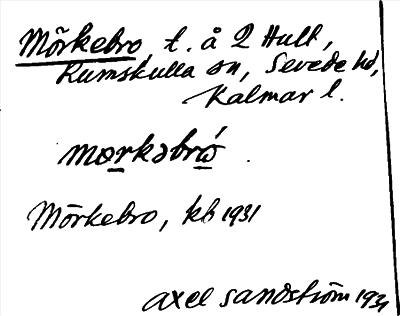 Mörkebro, t. å 2 Hult,
Rumskulla sn, Sevede hd,
Kalmar l.
mərkəbrω̇́
Mörkebro, kb 1931
Axel Sandström 1931